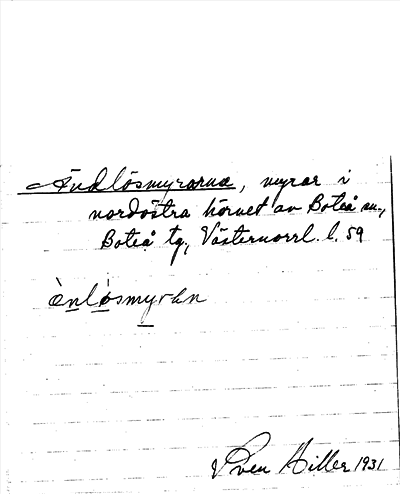 Ändlösmyrarna, myrar i
nordöstra hörnet av Boteå sn,
Boteå tg, Västernorrl. l. 59
ènlòsmyran
Sven Hiller 1931